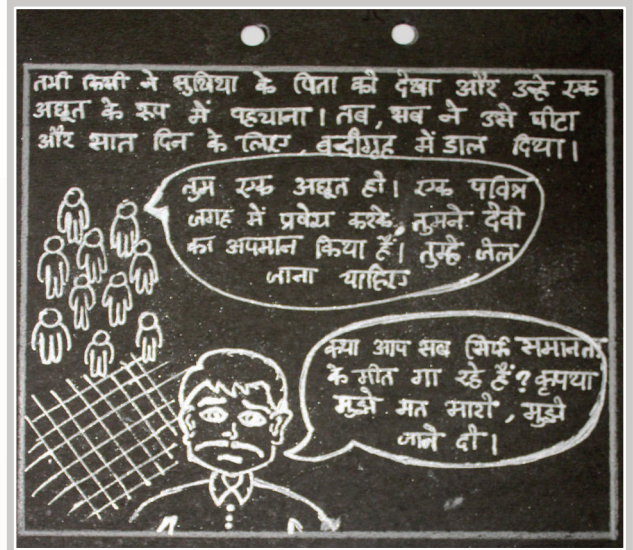 तभी किसी ने सुखिया के पिता को देखा और उन्हे एक
अछूत के रूप में पहचाना। तब, सब ने उसे पीटा
और सात दिन के लिए, बन्दीगृह में डाल दिया।
तुम एक अछूत हो। एक पवित्र
जगह में प्रवेश करके, तुमने देवी
का अपमान किया हैं। तुम्हे जेल
जाना चाहिए
क्या आप सब सिर्फ समानता
के गीत गा रहे हैं? कृपया
मुझे मत मारो, मुझे
जाने दो।